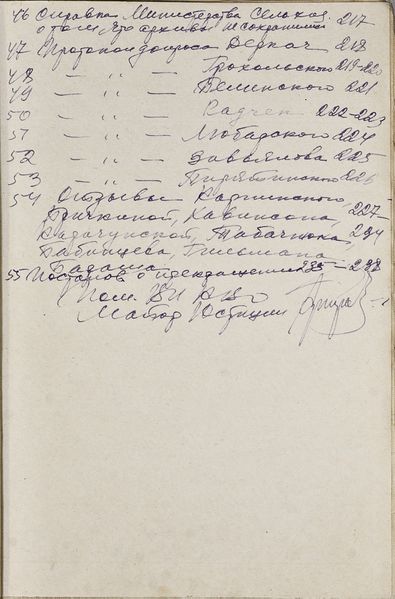 46 Справка Министерства Сельхоз. 217
о том что архивы не сохранились
47 Протокол допроса Деркач 218
48 — " — Грохольского 219-220
49 — " — Белинского 221
50 — " — Радчен 222-223
51 — " — Любарского 224
52 — " — Завьялова 225
53 — " — Пирятинского 226
54 Отзывы Карпинского,
Бричкиной, Кавинсона, 227-
Табачника, 294
Бабинцева, Гильмана
55 Постановл о прекращении 295-298
Пом. ВП КВО
Майор Юстиции